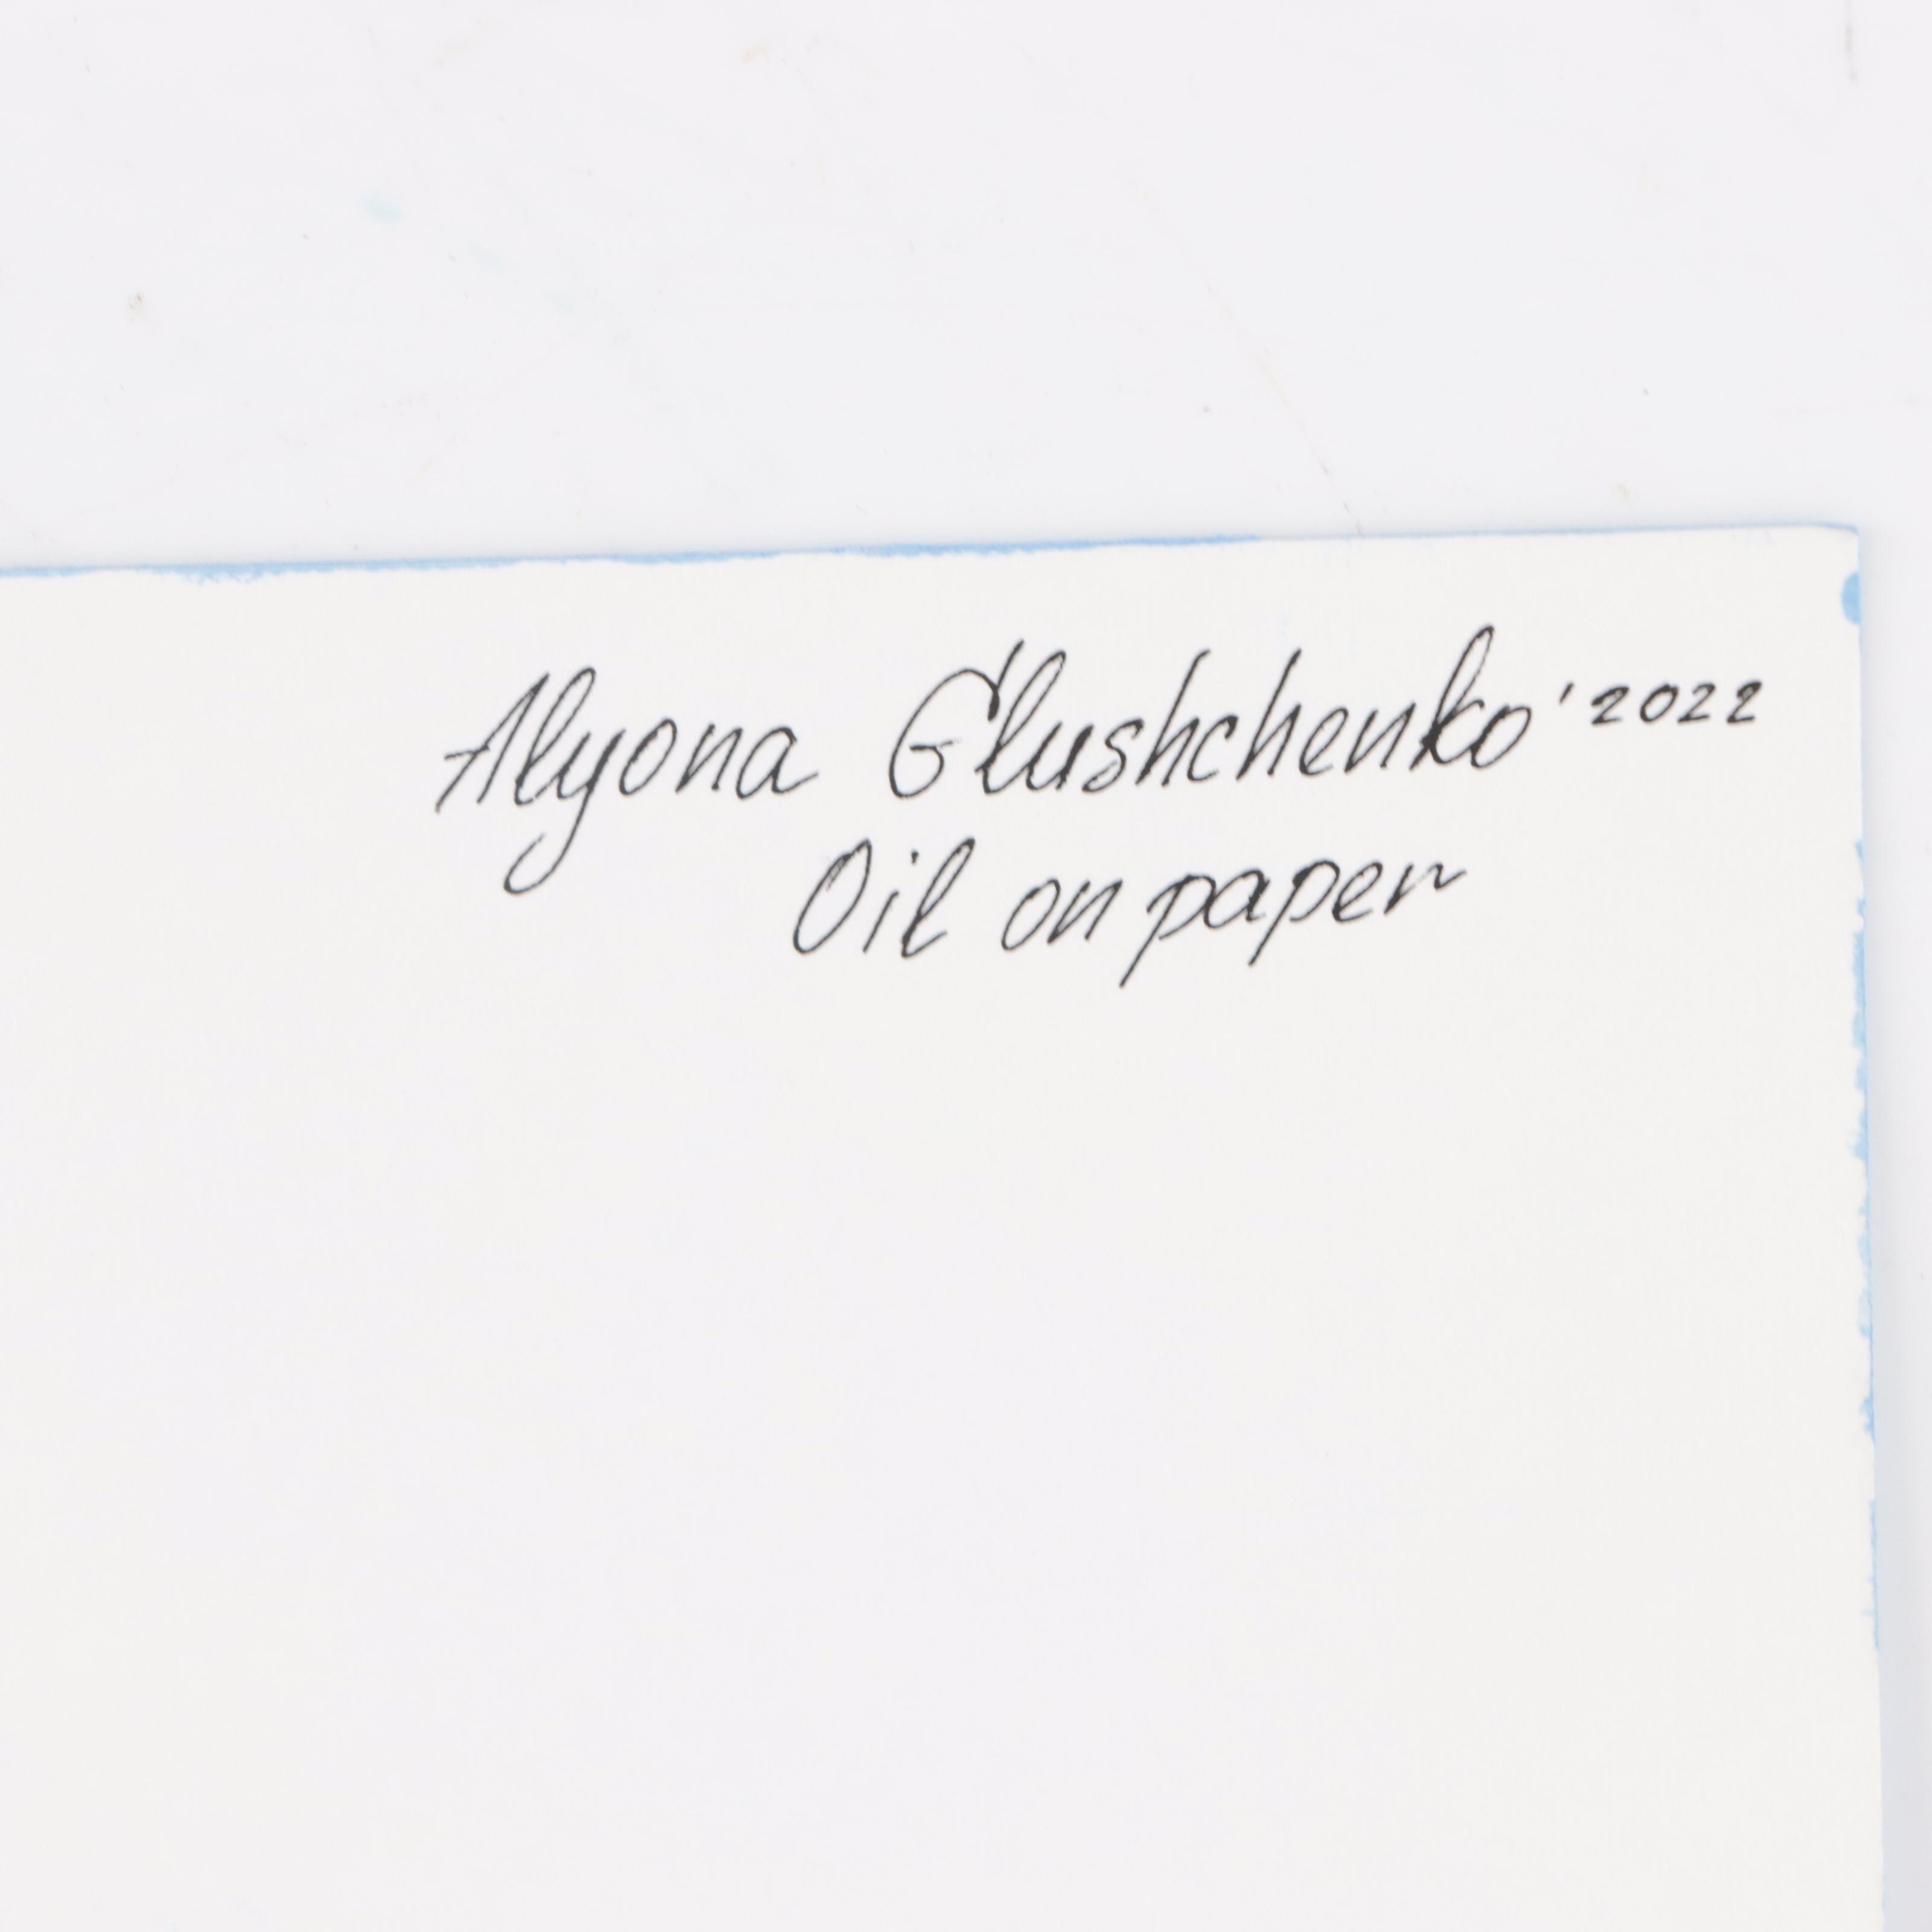 Alyona Glushchenko '2022
Oil on paper